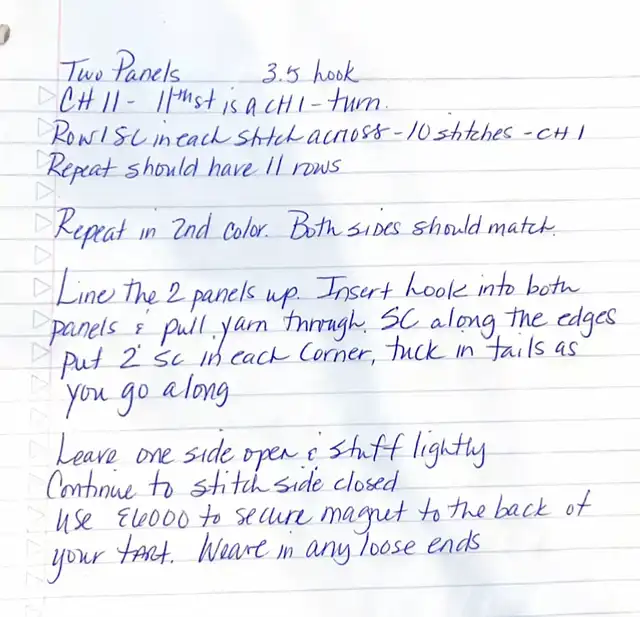 Two Panels 3.5 hook
CH 11 - 11th st is a CH 1 - turn.
Row 1 SC in each stitch across - 10 stitches - CH 1
Repeat should have 11 rows
Repeat in 2nd color. Both sides should match.
Line the 2 panels up. Insert hook into both
panels & pull yarn through. SC along the edges
put 2 SC in each corner, tuck in tails as
you go along
Leave one side open & stuff lightly
Continue to stitch side closed
Use E6000 to secure magnet to the back of
your tART. Weave in any loose ends